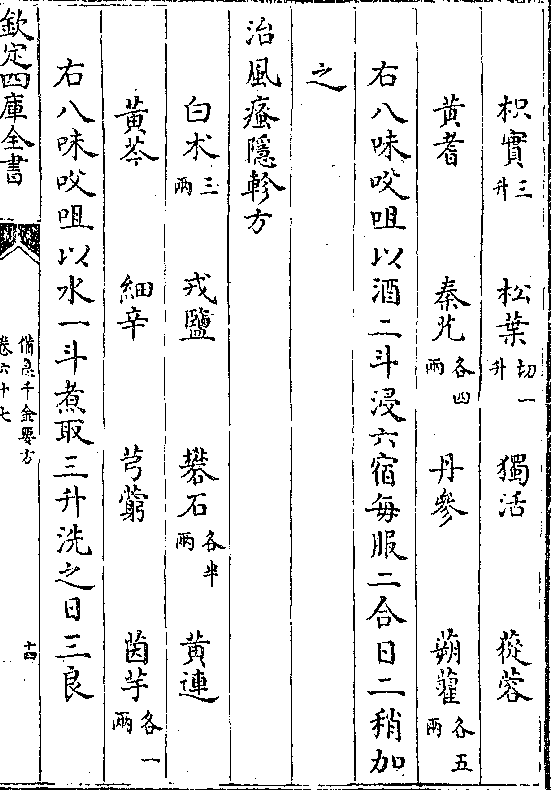 枳實三升　松葉切一升　獨活　蓯蓉
黃耆　秦艽各四兩　丹參　蒴藋各五兩
右八味㕮咀以酒二斗浸六宿每服二合日二稍加
之
治風瘙隱軫方
白朮三兩　戎鹽　礬石各半兩　黃連
黃芩　細辛　芎藭　茵芋各一兩
右八味㕮咀以水一斗煮取三升洗之日三良
欽定四庫全書
備急千金要方
卷六十七
十四